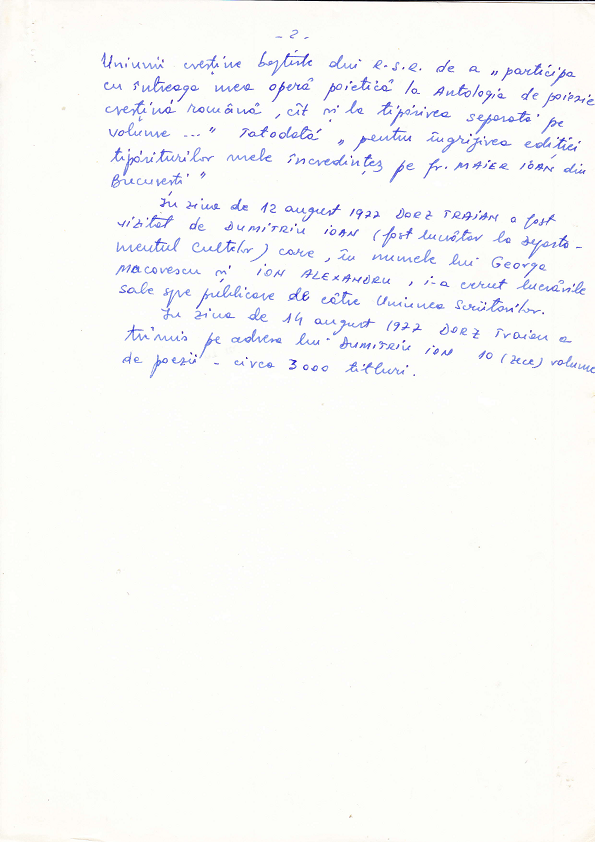 - 2 -
Uniunii creștine baptiste din R.S.R. de a „participa
cu întreaga mea operă poietică la Antologia de poiezie
creștină română, cît și la tipărirea separată pe
volume ..." Totodată „pentru îngrijirea ediției
tipăriturilor mele încredințez pe fr. MAIER IOAN din
București"
În ziua de 12 august 1977 DORZ TRAIAN a fost
vizitat de DUMITRIU IOAN (fost lucrător la Departa-
mentul Cultelor) care, în numele lui George
Macovescu și ION ALEXANDRU, i-a cerut lucrările
sale spre publicare de către Uniunea Scriitorilor.
În ziua de 14 august 1977 DORZ Traian a
trimis pe adresa lui DUMITRIU ION 10 (zece) volume
de poezii - circa 3000 titluri.